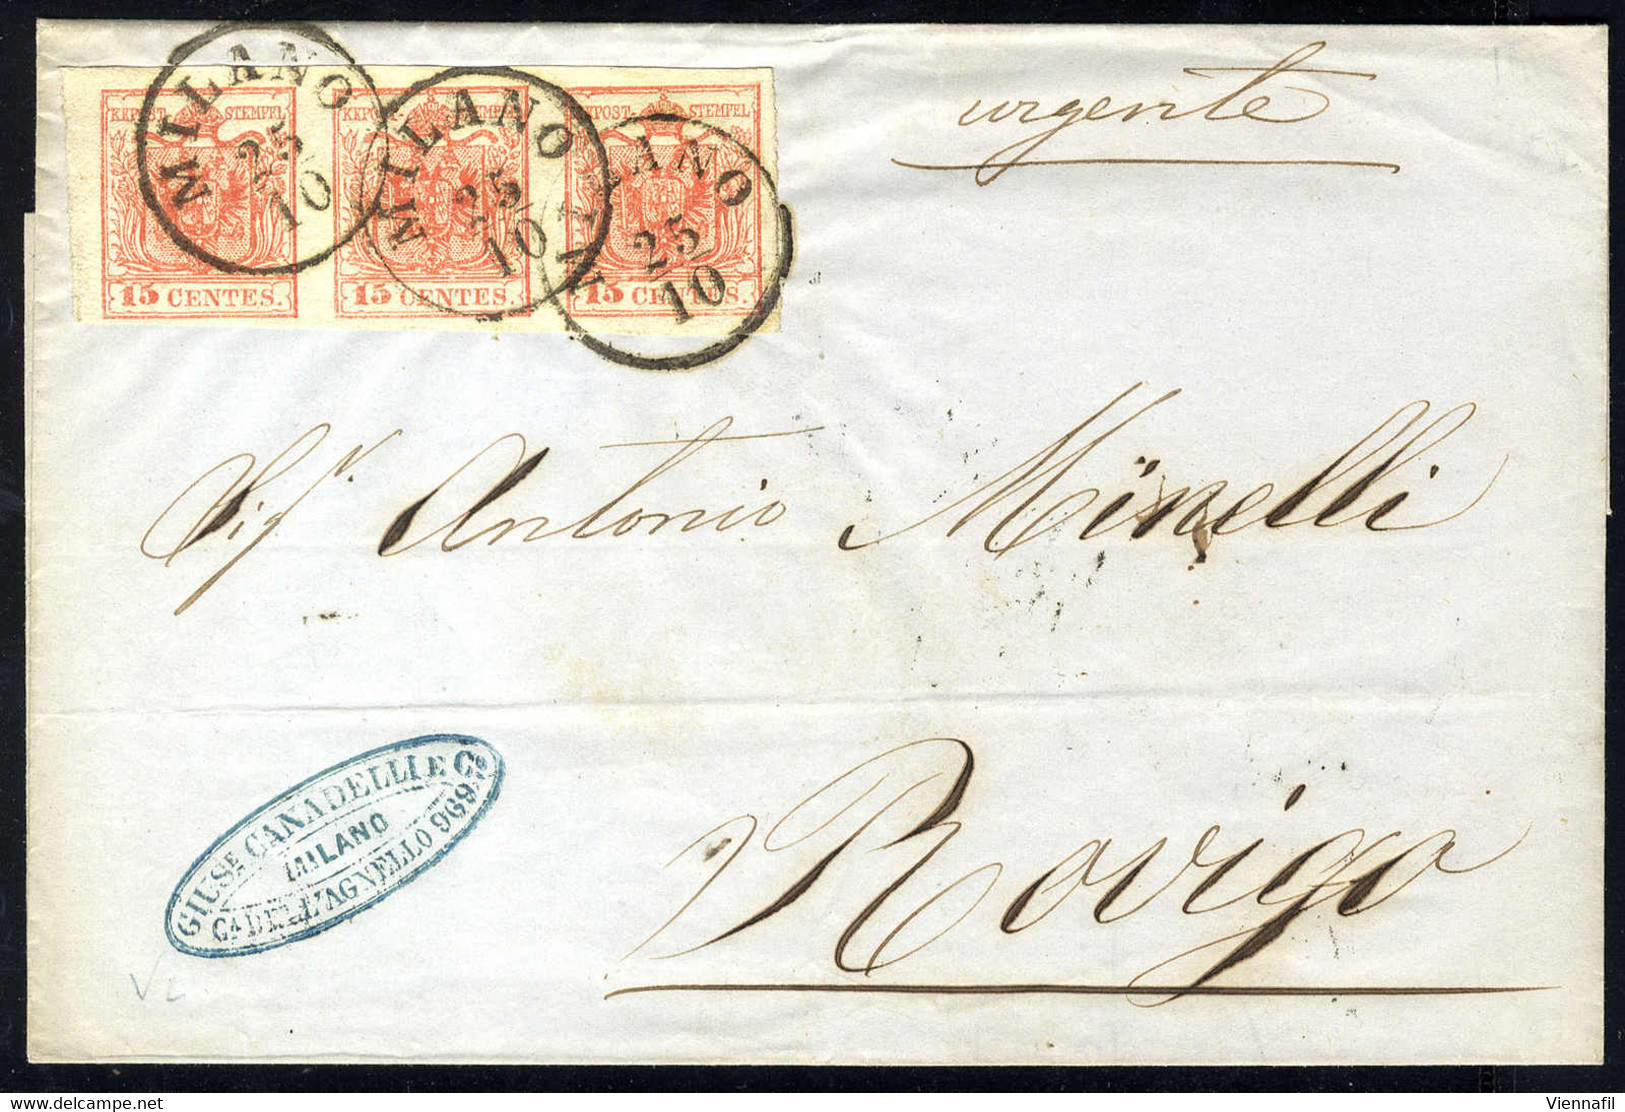 urgente
KKPOST-STEMPEL KKPOST-STEMPEL KKPOST-STEMPEL
15 CENTES. 15 CENTES. 15 CENTES.
MILANO
25
10
MILANO
25
10
MILANO
25
10
Sigr. Antonio Minelli
Rovigo
GIUSe CANADELLI E Co
MILANO
Ca DELL'AGNELLO 969
Viennafil